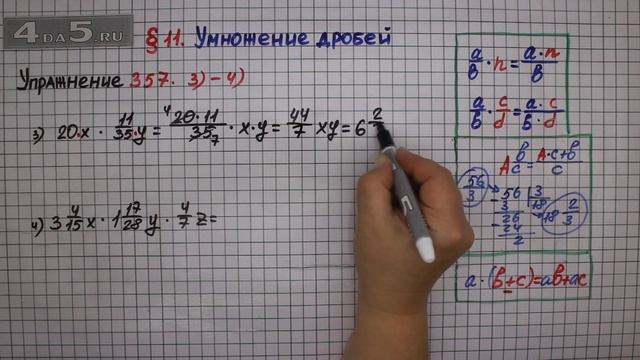 4DA5.RU
§ 11. Умножение дробей
Упражнение 357. 3) – 4)
3) 20·x · 11/35·y = 20·11/35 · x·y = 44/7 xy = 6 2
4 7
4) 3 4/15 x · 1 17/28 y · 4/7 z =
a/в · n = a·n/в
a/в · c/d = a·c/в·d
A в/c = A·c+в/c
56/3
56 3
3 18
26
24
2
18 2/3
a·(в+c)=aв+ac